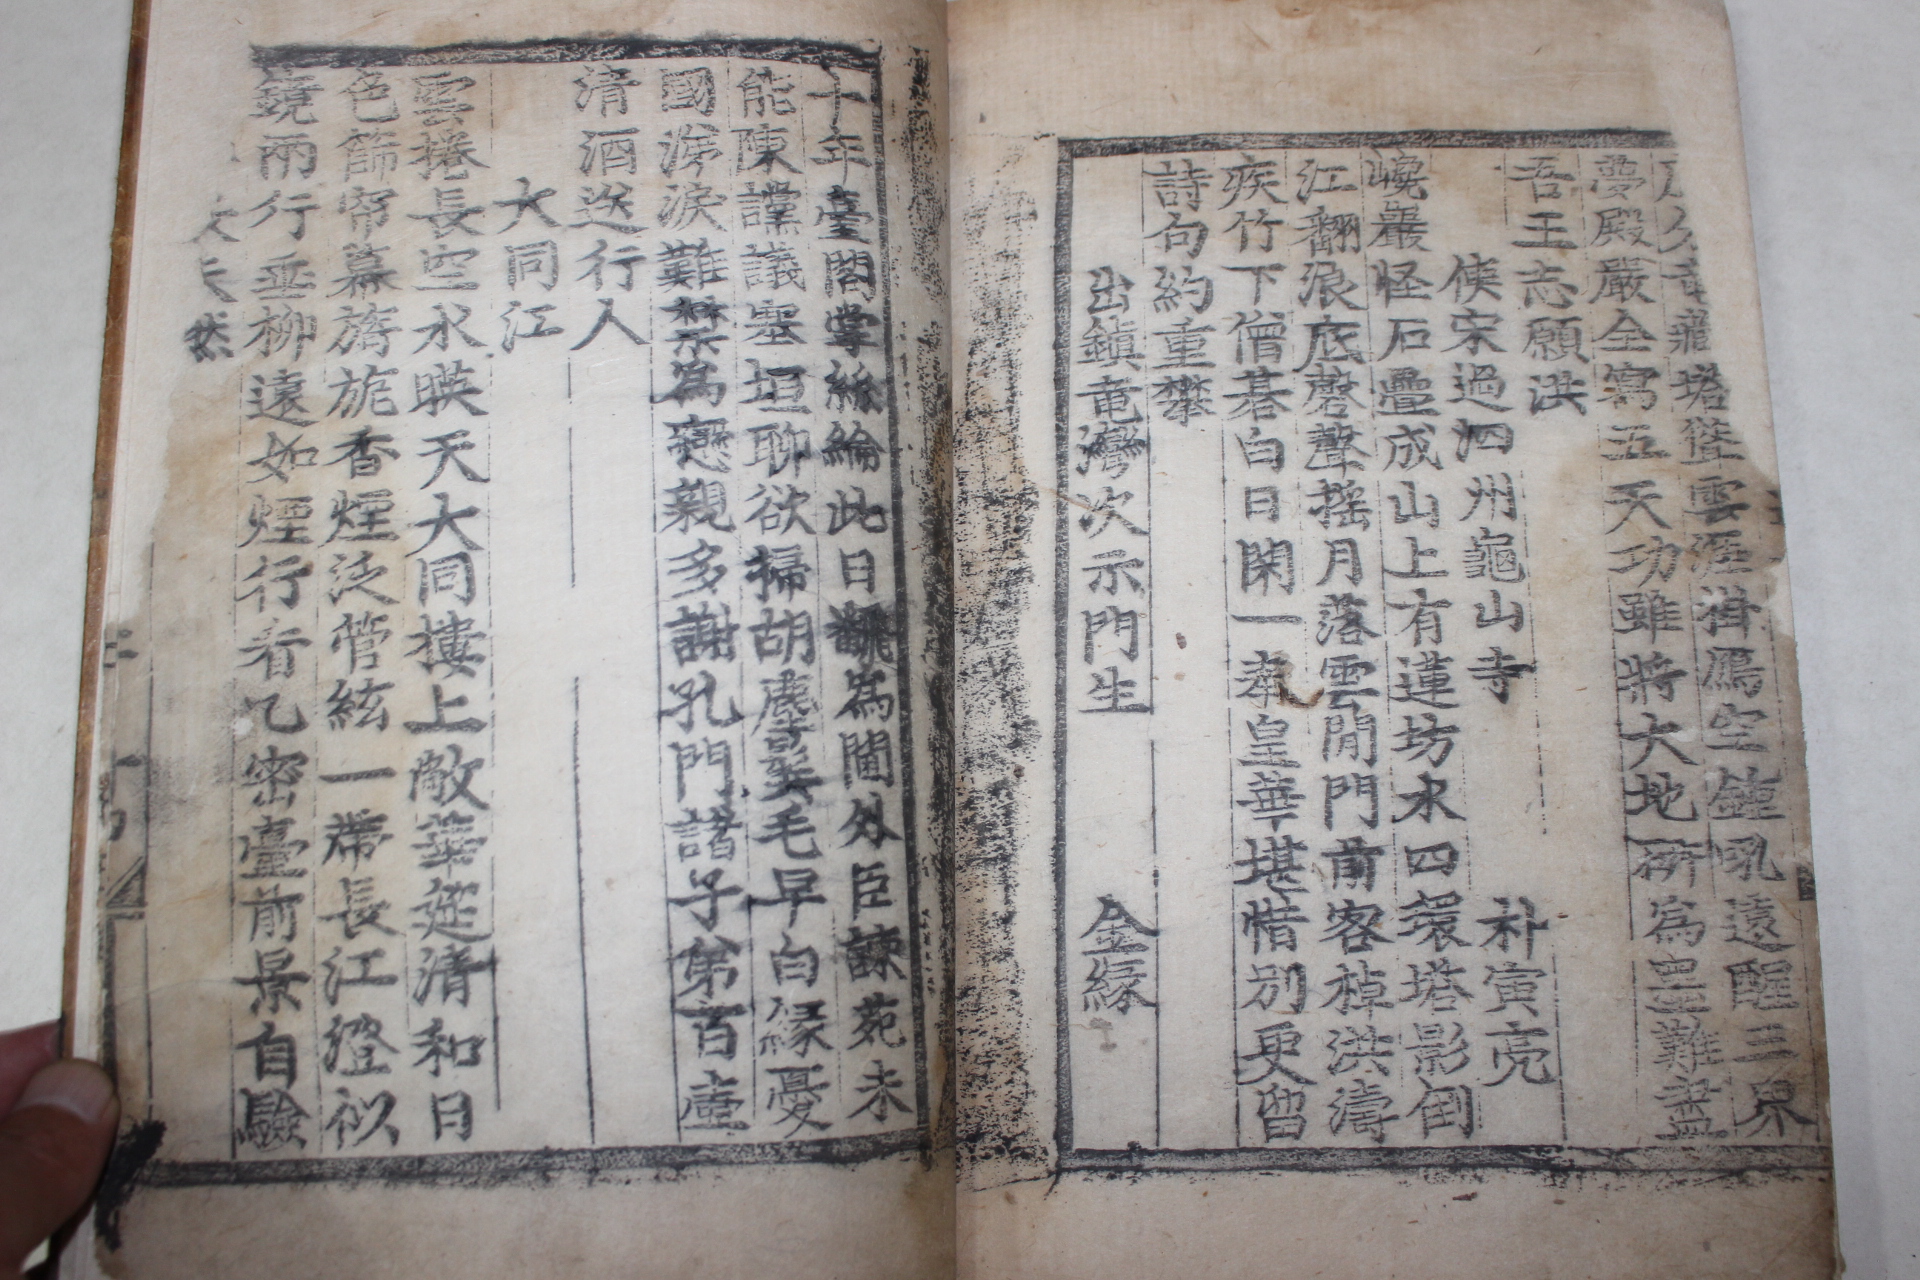 塔聳雲涯揖鴈空鍾吼遠醒三界
夢殿嚴全寫五天功雖將大地研為墨難盡
吾王志願洪
使宋過泗州龜山寺 朴寅亮
巉巖怪石疊成山上有蓮坊水四環塔影倒
江翻浪底磬聲搖月落雲間門前客棹洪濤
疾竹下僧碁白日閑一奉皇華堪惜別更留
詩句約重攀
出鎮竜灣次示門生 金緣
十年臺閣掌絲綸此日翻為閫外臣諫苑未
能陳讜議塞垣聊欲掃胡塵鬂毛早白緣憂
國涕淚難禁為戀親多謝孔門諸子弟百壺
清酒送行人
大同江
雲捲長空水暎天大同樓上敞華筵清和日
色篩帘幕旖旎香煙泛管絃一帶長江澄似
鏡兩行垂柳遠如煙行看乙密臺前景自驗